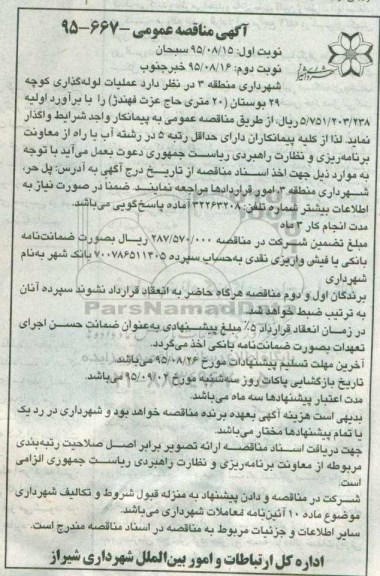 آگهی مناقصه عمومی -۶۶۷-۹۵
نوبت اول: ۹۵/۰۸/۱۵ سبحان
نوبت دوم: ۹۵/۰۸/۱۶ خبرجنوب
شهرداری منطقه ۳ در نظر دارد عملیات لوله‌گذاری کوچه
۲۹ بوستان (۲۰ متری حاج عزت فهندژ) را با برآورد اولیه
۵/۷۵۱/۲۰۳/۲۳۸ ریال، از طریق مناقصه عمومی به پیمانکار واجد شرایط واگذار
نماید. لذا از کلیه پیمانکاران دارای حداقل رتبه ۵ در رشته آب یا راه از معاونت
برنامه‌ریزی و نظارت راهبردی ریاست جمهوری دعوت بعمل می‌آید با توجه
به موارد ذیل جهت اخذ اسناد مناقصه از تاریخ درج آگهی به آدرس: پل حر،
شهرداری منطقه ۳، امور قراردادها مراجعه نمایند. ضمنا در صورت نیاز به
اطلاعات بیشتر شماره تلفن: ۳۲۲۶۳۲۰۸ آماده پاسخ‌گویی می‌باشد.
مدت انجام کار ۳ ماه
مبلغ تضمین شرکت در مناقصه ۲۸۷/۵۷۰/۰۰۰ ریال بصورت ضمانت‌نامه
بانکی یا فیش واریزی نقدی به‌حساب سپرده ۷۰۰۷۸۶۵۱۱۳۰۵ بانک شهر به‌نام
شهرداری
برندگان اول و دوم مناقصه هرگاه حاضر به انعقاد قرارداد نشوند سپرده آنان
به ترتیب ضبط خواهد شد.
در زمان انعقاد قرارداد ۵٪ مبلغ پیشنهادی به‌عنوان ضمانت حسن اجرای
تعهدات بصورت ضمانت‌نامه بانکی اخذ می‌گردد.
آخرین مهلت تسلیم پیشنهادات مورخ ۹۵/۰۸/۲۶ می‌باشد.
تاریخ بازگشایی پاکات روز سه‌شنبه مورخ ۹۵/۰۹/۰۲ می‌باشد.
مدت اعتبار پیشنهادها سه ماه می‌باشد.
بدیهی است هزینه آگهی بعهده برنده مناقصه خواهد بود و شهرداری در رد یک
یا تمام پیشنهادها مختار می‌باشد.
جهت دریافت اسناد مناقصه ارائه تصویر برابر اصل صلاحیت رتبه‌بندی
مربوطه از معاونت برنامه‌ریزی و نظارت راهبردی ریاست جمهوری الزامی
است.
شرکت در مناقصه و دادن پیشنهاد به منزله قبول شروط و تکالیف شهرداری
موضوع ماده ۱۰ آئین‌نامه معاملات شهرداری می‌باشد.
سایر اطلاعات و جزئیات مربوط به مناقصه در اسناد مناقصه مندرج است.
اداره کل ارتباطات و امور بین‌الملل شهرداری شیراز